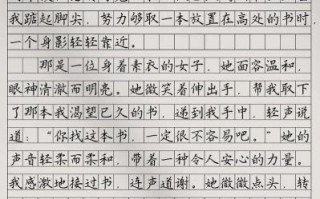 我踮起脚尖，努力够取一本放置在高处的书时，
一个身影轻轻靠近。
那是一位身着素衣的女子，她面容温和，
眼神清澈而明亮。她微笑着伸出手，帮我取下
了那本我渴望已久的书，递到我手中，轻声说
道：“你找这本书，一定很不容易吧。”她的
声音轻柔而柔和，带着一种令人安心的力量。
我感激地接过书，连声道谢。她微微点头，转